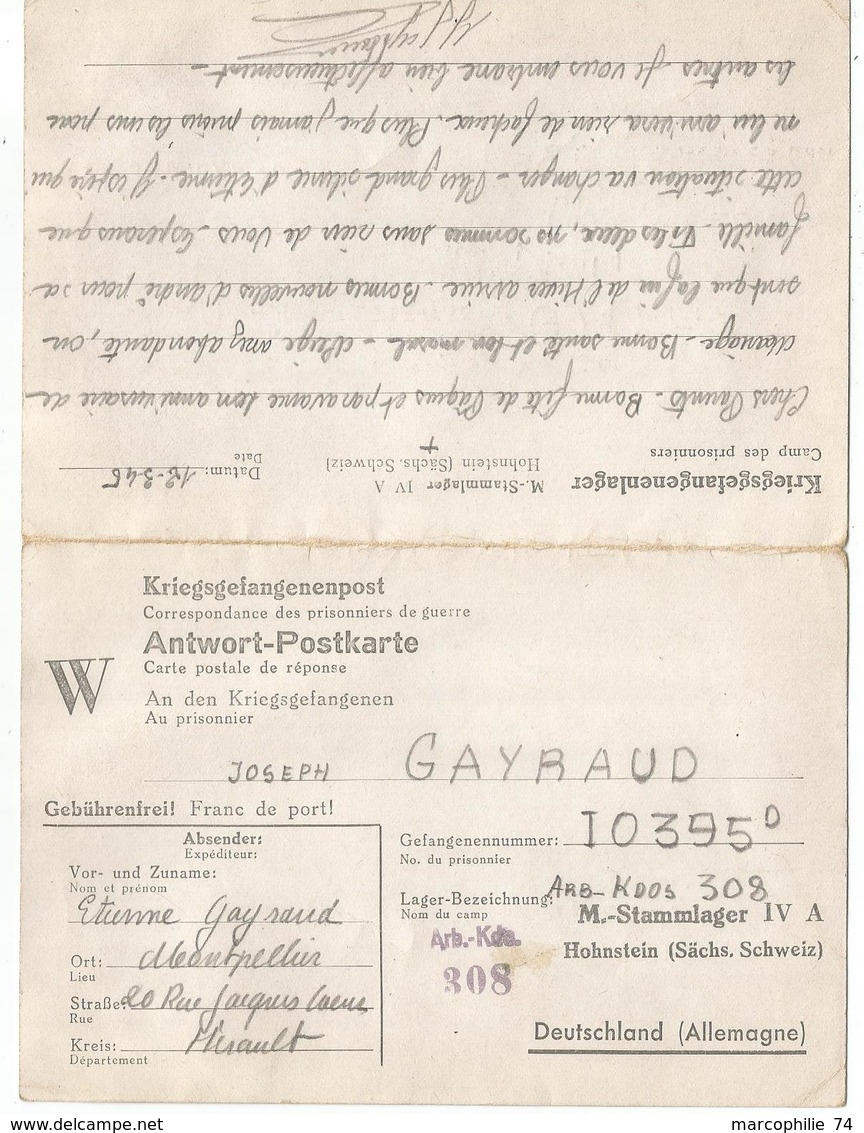 Kriegsgefangenenlager
Camp des prisonniers
M.-Stammlager IV A
Hohnstein (Sächs. Schweiz)
Datum: 18-3-45
Date
Chers Parents - Bonne fête de Pâques et par avance bon anniversaire de
mariage - Bonne santé et bon moral - neige assez abondante, on
sent que la fin de l'Hiver arrive. Bonnes nouvelles d'andré pour sa
famille. Tt les deux, ns sommes sans rien de Vous - Espérons que
cette situation va changer - Plus grand silence d'Etienne. J'espère qu'il
ne lui arrivera rien de facheux. Plus que jamais prions les uns pour
les autres. Je vous embrasse bien affectueusement -
Kriegsgefangenenpost
Correspondance des prisonniers de guerre
Antwort-Postkarte
Carte postale de réponse
W
An den Kriegsgefangenen
Au prisonnier
JOSEPH GAYRAUD
Gebührenfrei! Franc de port!
Absender:
Expéditeur:
Vor- und Zuname:
Nom et prénom
Etienne Gayraud
Ort: Montpellier
Lieu
Straße: 20 Rue Jacques Coeur
Rue
Kreis: Hérault
Département
Gefangenennummer: 10395 D
No. du prisonnier
Lager-Bezeichnung: ARB-KDOS 308
Nom du camp
M.-Stammlager IV A
Arb.-Kdo.
308
Hohnstein (Sächs. Schweiz)
Deutschland (Allemagne)
www.delcampe.net
marcophilie 74